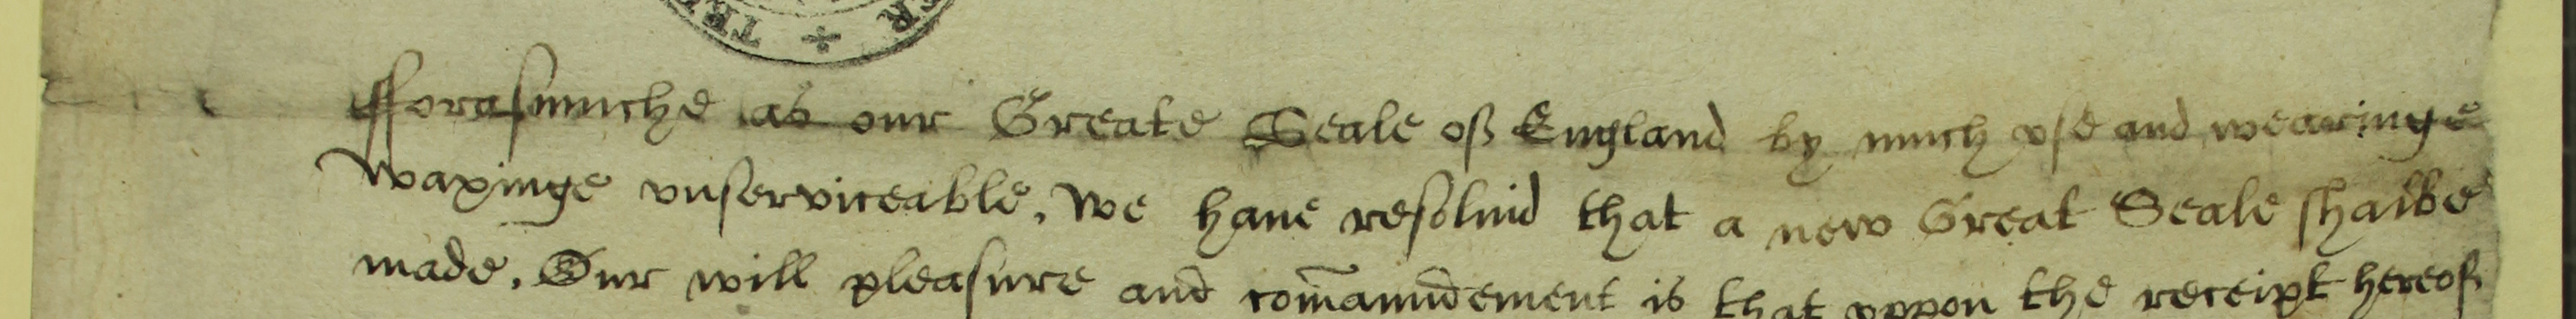 TRE + ER
fforasmuche as our Greate Seale of England by much vse and wearinge
waxinge vnserviceable, We haue resolued that a new Great Seale shalbe
made, Our will pleasure and com̄aundement is that vppon the receipt hereof